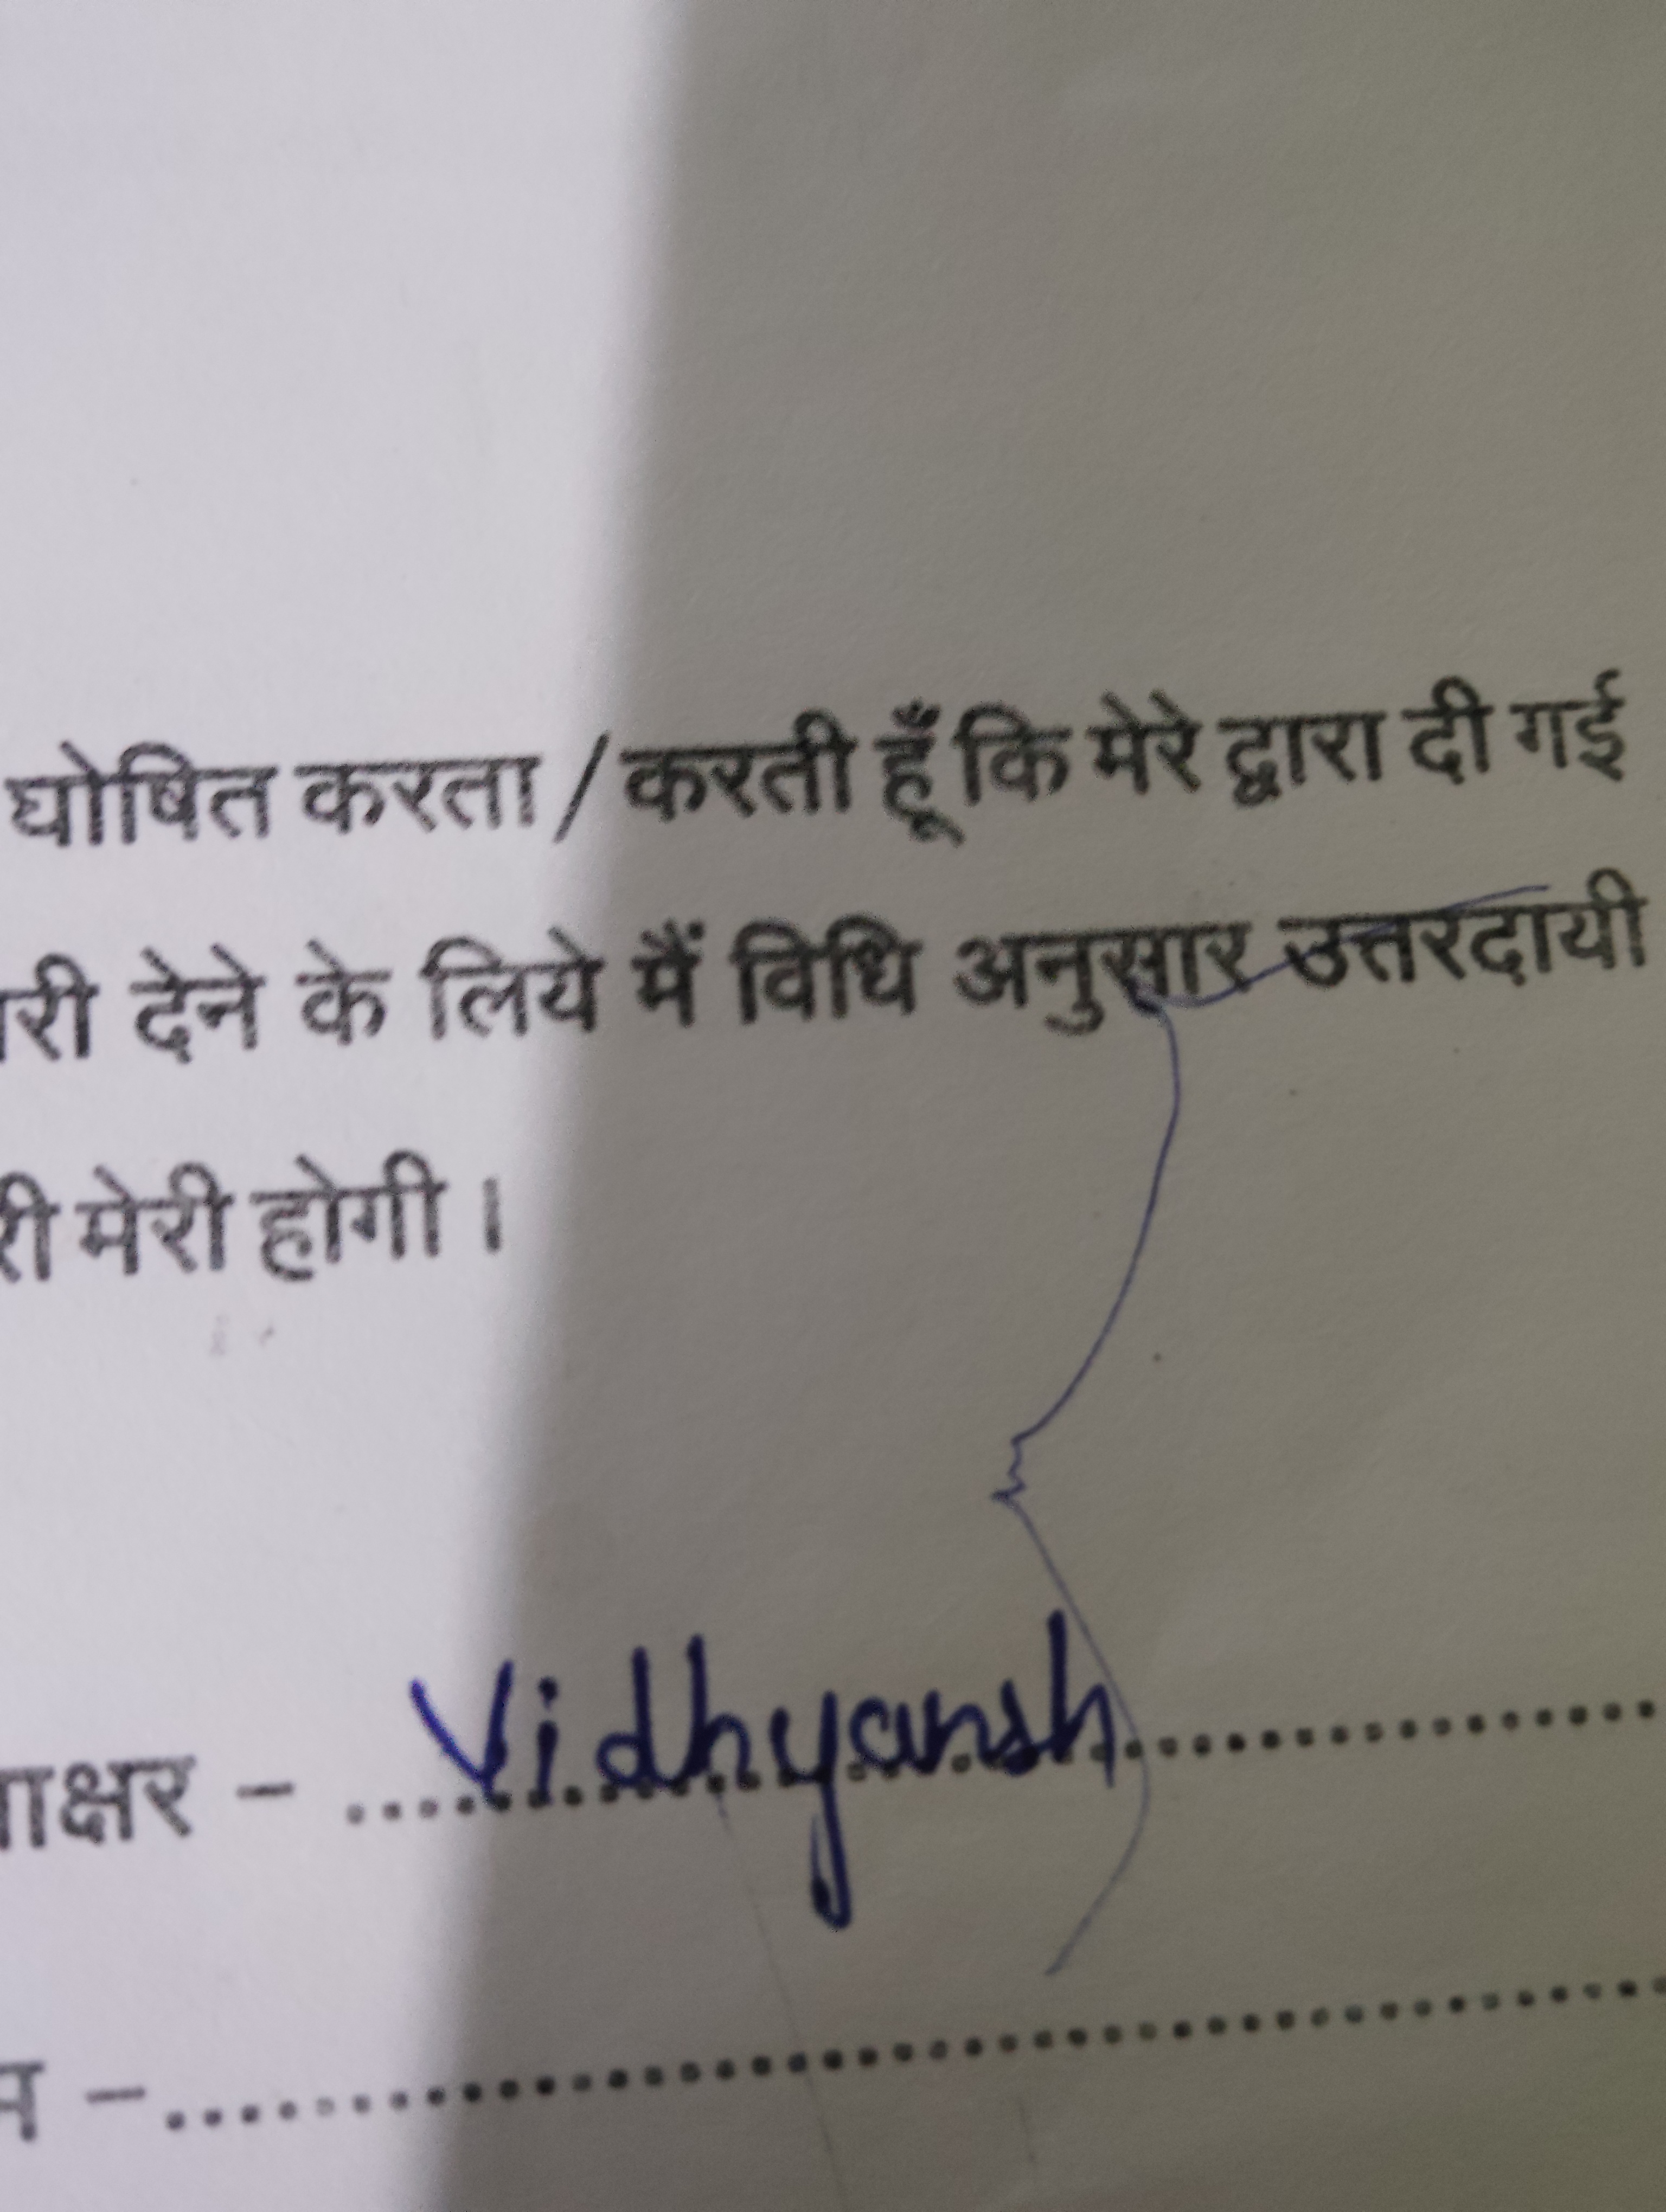 घोषित करता / करती हूँ कि मेरे द्वारा दी गई
देने के लिये मैं विधि अनुसार उत्तरदायी
मेरी होगी ।
- Vidhyansh ..............
- ..............................